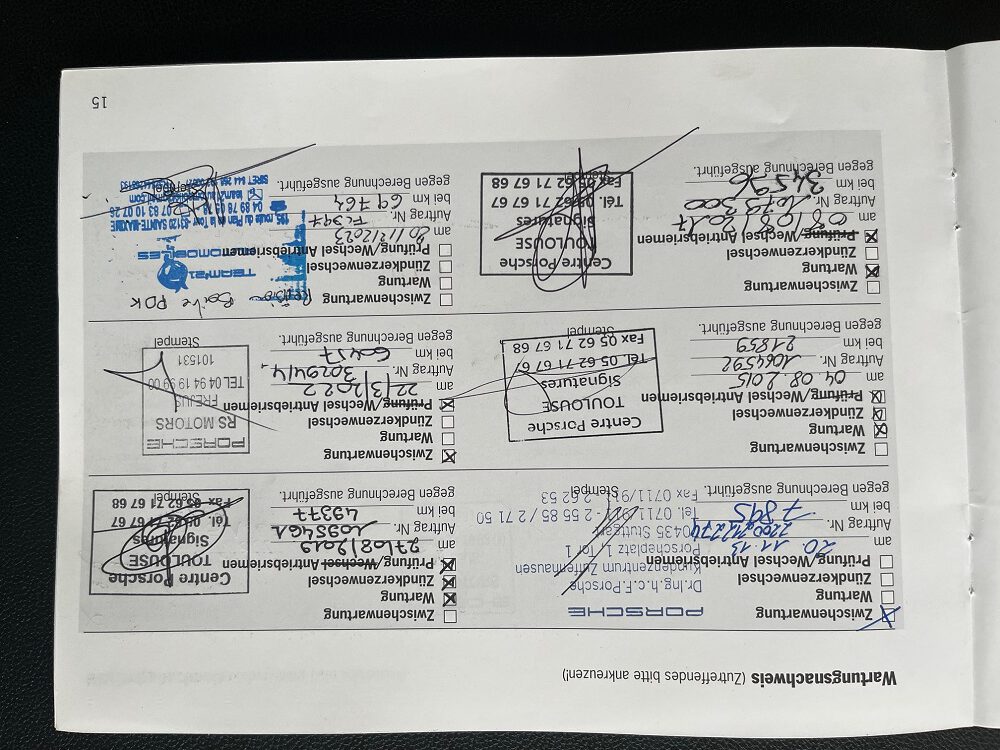 Wartungsnachweis (Zutreffendes bitte ankreuzen!)
Zwischenwartung
Wartung
Zündkerzenwechsel
Prüfung/Wechsel Antriebsriemen
am 20. 11. 13
Auftrag Nr.
bei km 7895
gegen Berechnung ausgeführt.
Stempel
PORSCHE
Dr.Ing.h.c.F.Porsche
Kundenzentrum Zuffenhausen
Porscheplatz 1, Tor 1
70435 Stuttgart
Tel. 0711/911 - 2 55 85 / 2 71 50
Fax 0711/911 - 2 62 53
Zwischenwartung
Wartung
Zündkerzenwechsel
Prüfung/Wechsel Antriebsriemen
am 04.08.2015
Auftrag Nr. 1064592
bei km 21859
gegen Berechnung ausgeführt.
Stempel
Centre Porsche
TOULOUSE
Signatures
Tél. 05 62 71 67 67
Fax 05 62 71 67 68
Zwischenwartung
Wartung
Zündkerzenwechsel
Prüfung/Wechsel Antriebsriemen
am 08/08/2017
Auftrag Nr. 1079300
bei km 34596
gegen Berechnung ausgeführt.
Centre Porsche
TOULOUSE
Signatures
Tél. 05 62 71 67 67
Fax 05 62 71 67 68
Zwischenwartung
Wartung
Zündkerzenwechsel
Prüfung/Wechsel Antriebsriemen
am 27/08/2019
Auftrag Nr. 1095461
bei km 49377
gegen Berechnung ausgeführt.
Stempel
Centre Porsche
TOULOUSE
Signatures
Tél. 05 62 71 67 67
Fax 05 62 71 67 68
Zwischenwartung
Wartung
Zündkerzenwechsel
Prüfung/Wechsel Antriebsriemen
am 22/3/2022
Auftrag Nr. 3029414
bei km 60417
gegen Berechnung ausgeführt.
Stempel
PORSCHE
RS MOTORS
FREJUS
TEL 04 94 19 99 00
101531
Zwischenwartung
Wartung
Zündkerzenwechsel
Prüfung/Wechsel Antriebsriemen
am 20/12/2023
Auftrag Nr.
bei km 69764
gegen Berechnung ausgeführt.
Boite PDK
AUTOMOBILES
route du Plan de la Tour - 83120 SAINTE-MAXIME
15